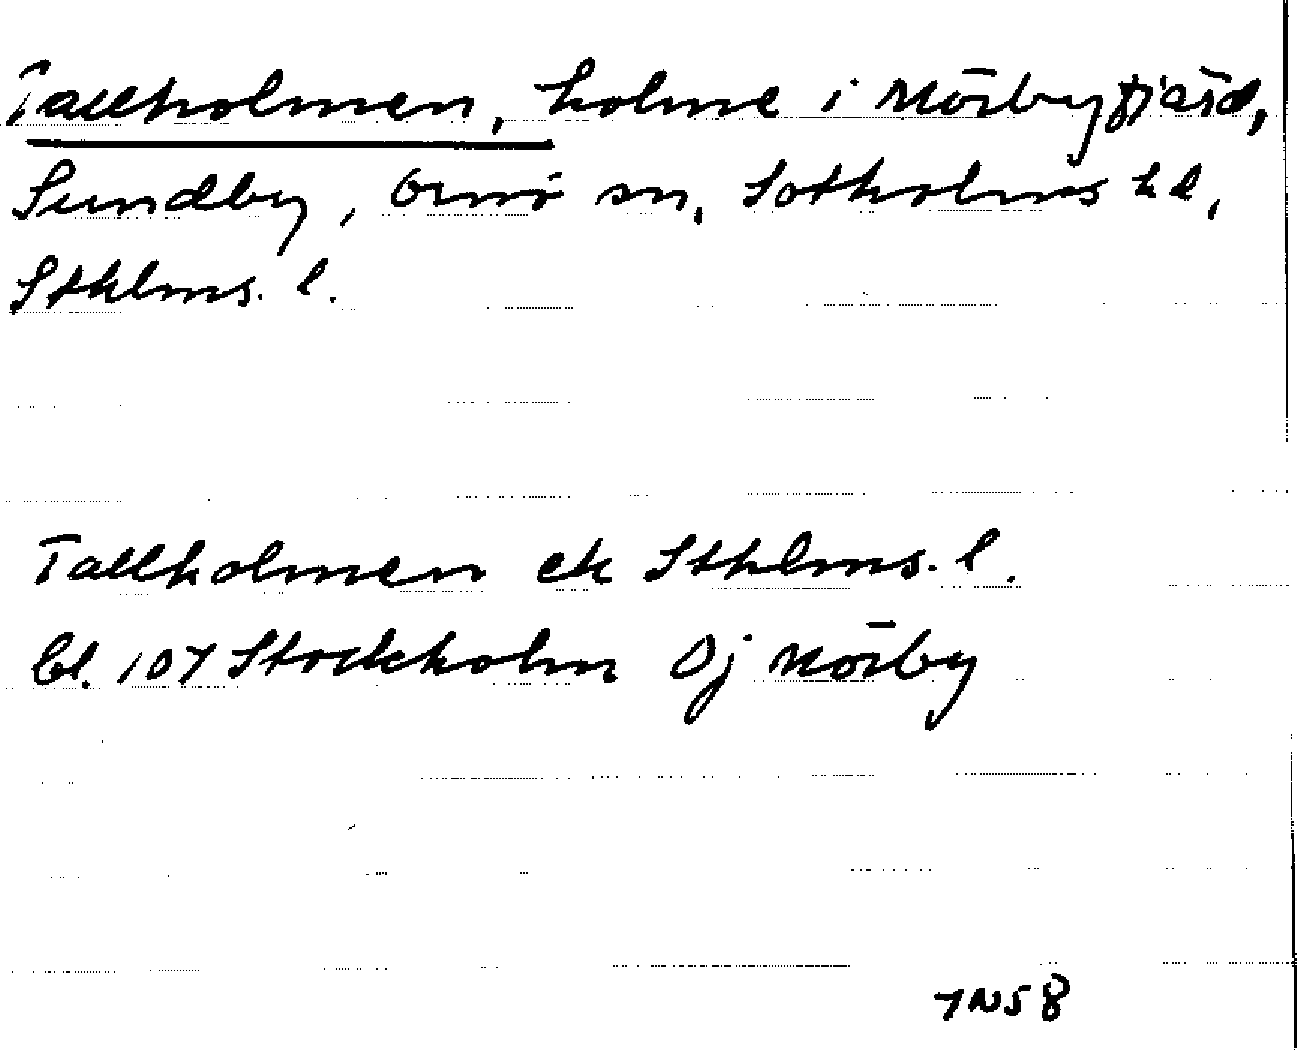 Tallholmen, holme i Mörbyfjärd,
Sundby, Ornö sn, Sotholms hd,
Sthlms. l.
Tallholmen ek Sthlms. l.
bl. 107 Stockholm Oj Mörby
7N58